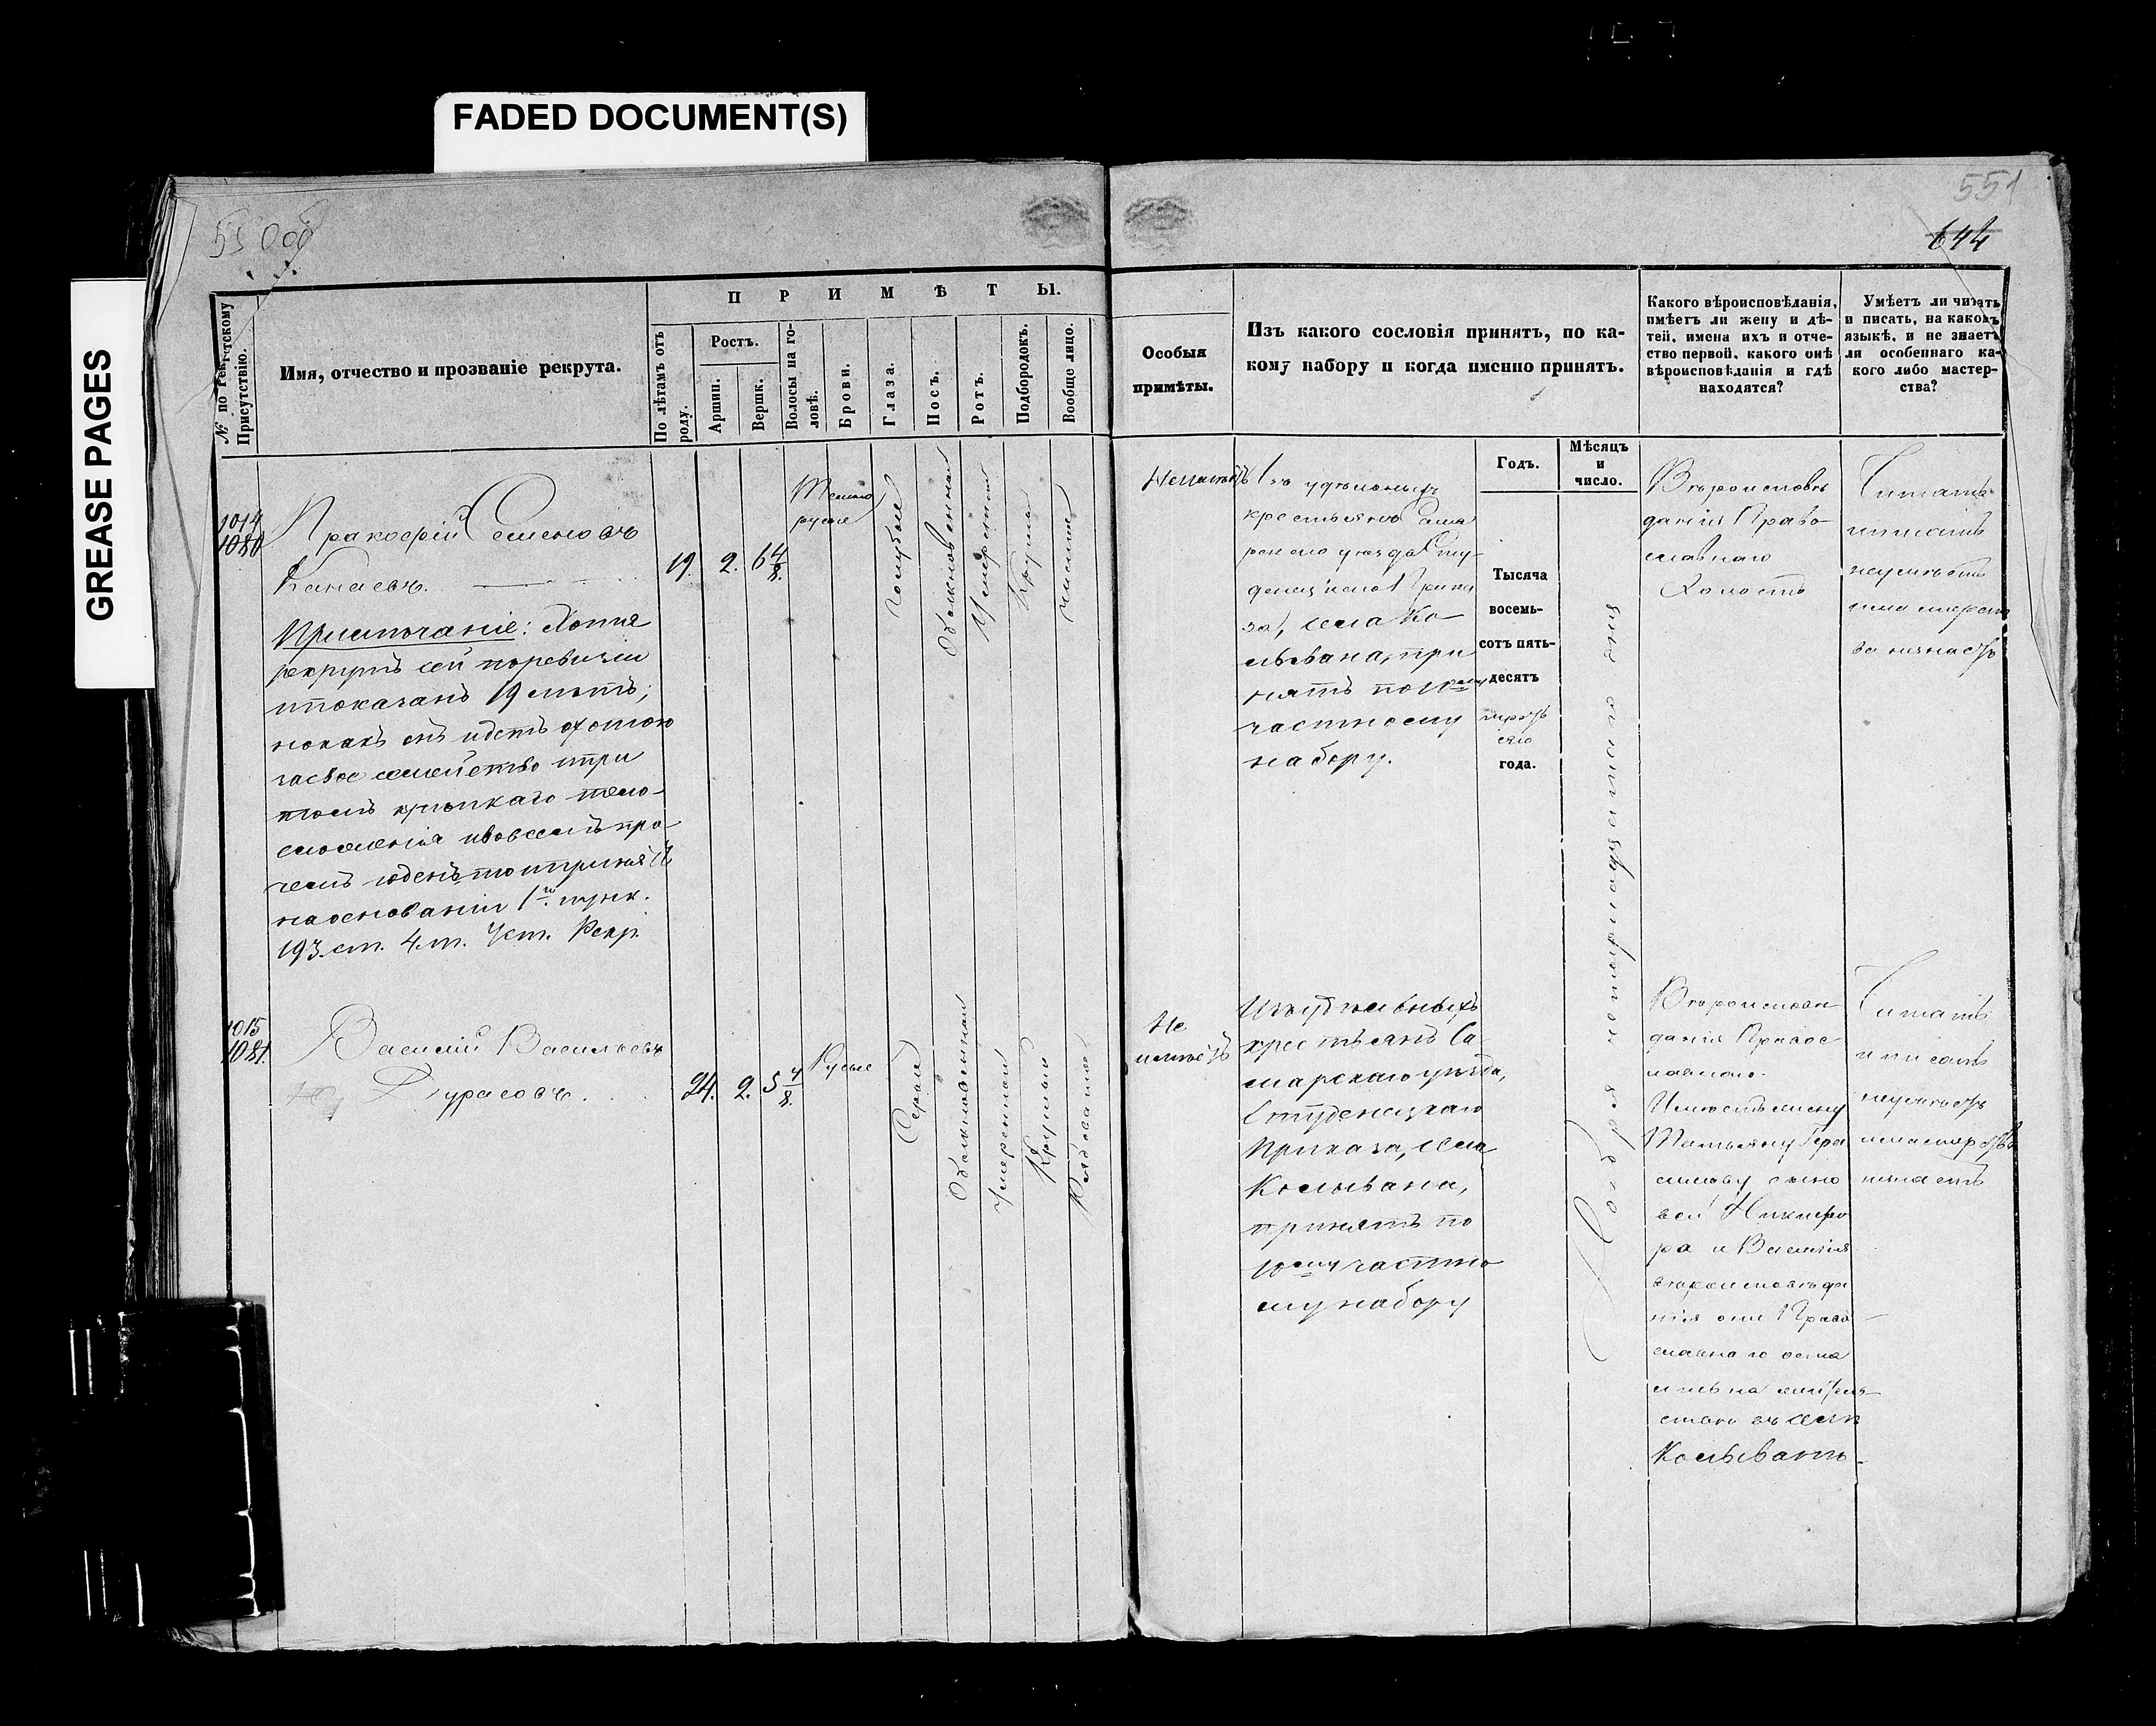 FADED DOCUMENT(S)
GREASE PAGES
550об
551
644
№ по Рекрутскому Присутствію.
Имя, отчество и прозваніе рекрута.
ПРИМѢТЫ.
По лѣтамъ отъ роду.
Ростъ.
Аршин.
Вершк.
Волосы на головѣ.
Брови.
Глаза.
Носъ.
Ротъ.
Подбородокъ.
Вообще лицо.
Особыя
примѣты.
Изъ какого сословія принятъ, по ка-
кому набору и когда именно принятъ.
Какого вѣроисповѣданія,
имѣетъ ли жену и дѣ-
тей, имена ихъ и отче-
ство первой, какого онѣ
вѣроисповѣданія и гдѣ
находятся?
Умѣетъ ли читать
и писать, на какомъ
языкѣ, и не знаетъ
ли особеннаго ка-
кого либо мастер-
ства?
Годъ.
Мѣсяцъ
и
число.
1014
1080
Пракофій Семеновъ
Канаевъ.
Примѣчаніе: Хотя
рекрутъ сей поревизіи
ипоказанъ 19 лѣтъ;
нокакъ онъ идетъ охотою
засвое семейство ипри
томъ крѣпкаго тело-
сложенія ивовсемъ про-
чемъ годенъ то ипринятъ
наоснованіи 1го пунк.
193 ст. 4 т. Уст. Рекр.
19.
2.
6 4/8.
Темно
русые
Голубые
Обыкновенный
Умеренный
Круглый
чистое
Неимѣетъ
Изъ удѣльныхъ
крестьянъ Сама
рскаго уѣзда Сту-
денецкаго Прика
за, села Ко-
лывана, при
нятъ по 10му
частному
набору.
Тысяча
восемь-
сотъ пять-
десятъ
третья
его
года.
Вѣроисповѣ
данія Право-
славнаго
Холостъ
Читать
иписать
неумѣетъ
имастерст
ва низнаетъ
1015
1081.
Василій Васильевъ
Дурасовъ.
24.
2.
5 4/8.
Русые
Серые
Обыкновенный
Умеренный
Круглый
Рябоватое
Не
имѣетъ
Изъ удѣльныхъ
крестьянъ Са
марскаго уѣзда,
Студенецкаго
Приказа, села
Колывана,
принятъ по
10му частно
му набору
Вѣроисповѣ
данія Правос
лавнаго.
Имѣетъ жену
Татьяну Гера
симову сыно
вей Никифо
ра и Василія
вѣроисповѣда
нія они Право
славнаго оста
лись на жител
стве въ селѣ
Колыванѣ.
Читать
и писать
неумѣетъ
имастерства
низнаетъ